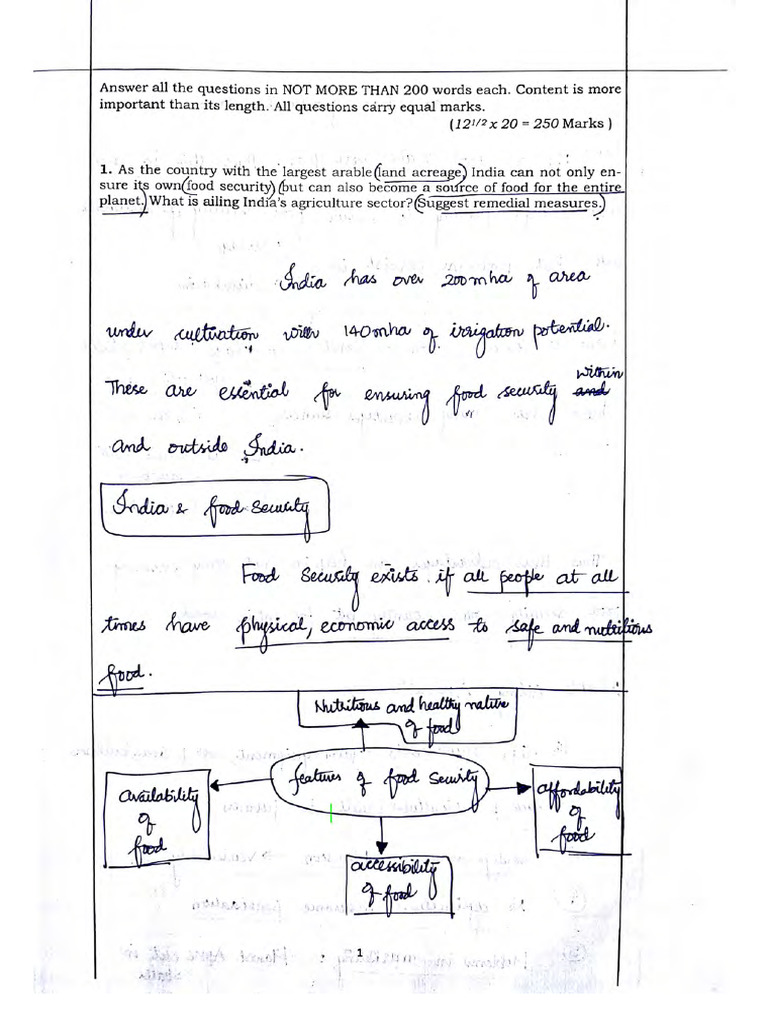 Answer all the questions in NOT MORE THAN 200 words each. Content is more
important than its length. All questions carry equal marks.
(12 1/2 x 20 = 250 Marks )
1. As the country with the largest arable (land acreage) India can not only en-
sure its own (food security) (but can also become a source of food for the entire
planet.) What is ailing India's agriculture sector? (Suggest remedial measures.)
India has over 200mha of area
under cultivation with 140mha of irrigation potential.
These are essential for ensuring food security and within
and outside India.
India & food Security
Food Security exists if all people at all
times have physical, economic access to safe and nutritious
food.
Nutritious and healthy native
of food
features of food Security
availability
of
food
affordability
of
food
accessibility
of food
1